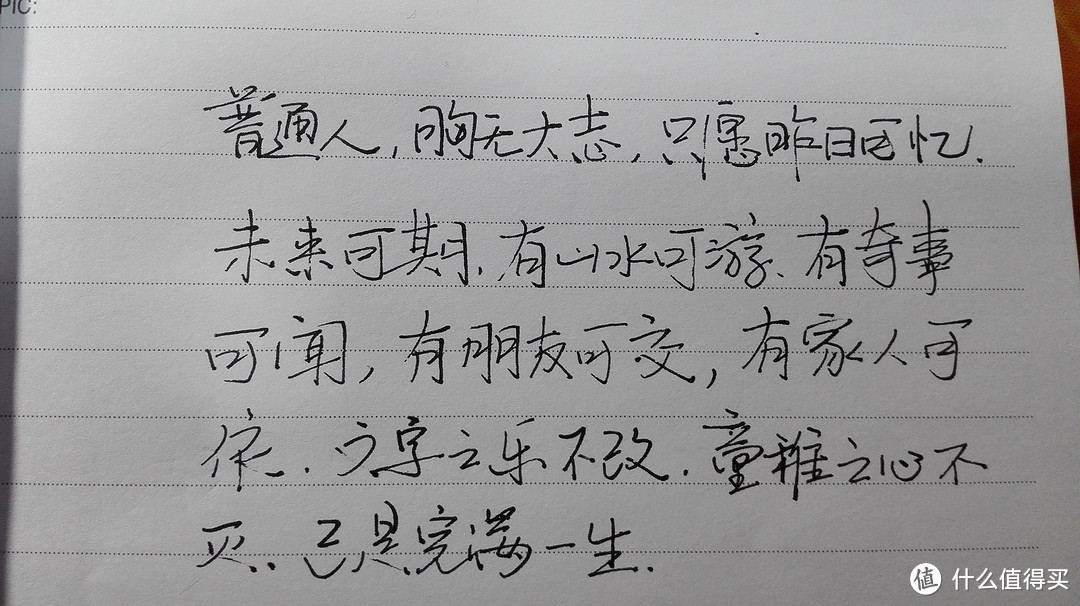 PIC:
普通人,胸无大志,只愿昨日可忆.
未来可期、有山水可游、有奇事
可闻,有朋友可交,有家人可
依.文字之乐不改.童稚之心不
灭.已是完满一生.
值 什么值得买